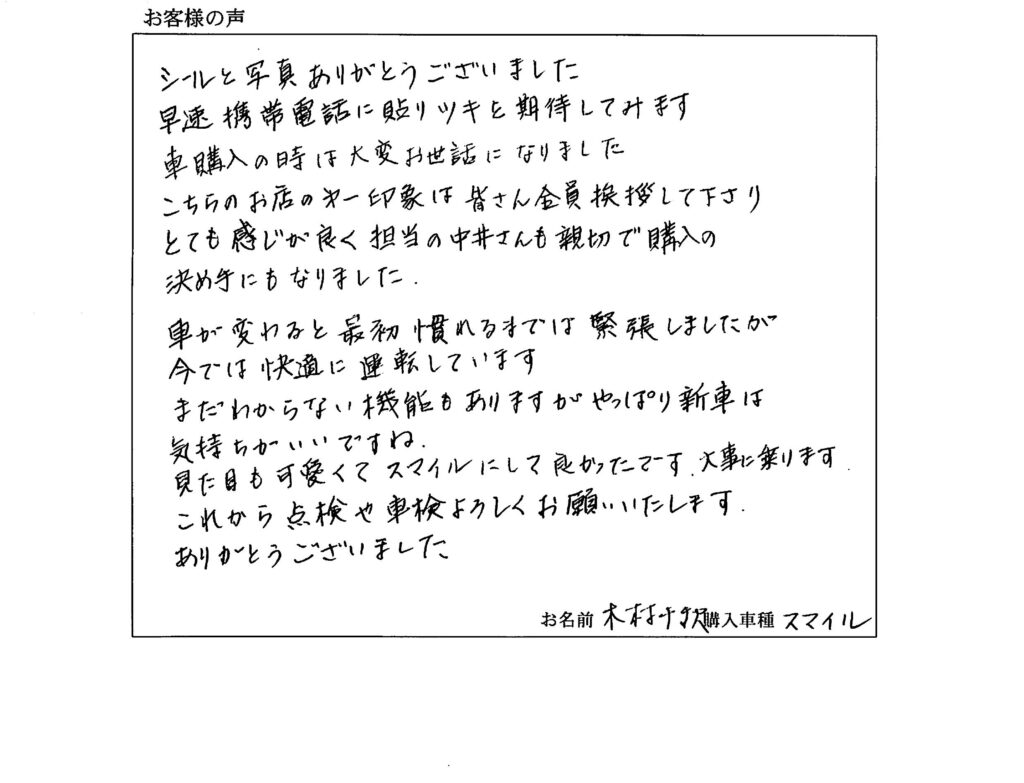 お客様の声
シールと写真ありがとうございました
早速携帯電話に貼りツキを期待してみます
車購入の時は大変お世話になりました
こちらのお店の第一印象は皆さん全員挨拶して下さり
とても感じが良く担当の中井さんも親切で購入の
決め手にもなりました.
車が変わると最初慣れるまでは緊張しましたが
今では快適に運転しています
まだわからない機能もありますがやっぱり新車は
気持ちがいいですね.
見た目も可愛くてスマイルにして良かったです.大事に乗ります.
これから点検や車検よろしくお願いいたします.
ありがとうございました
お名前 木村千 購入車種 スマイル